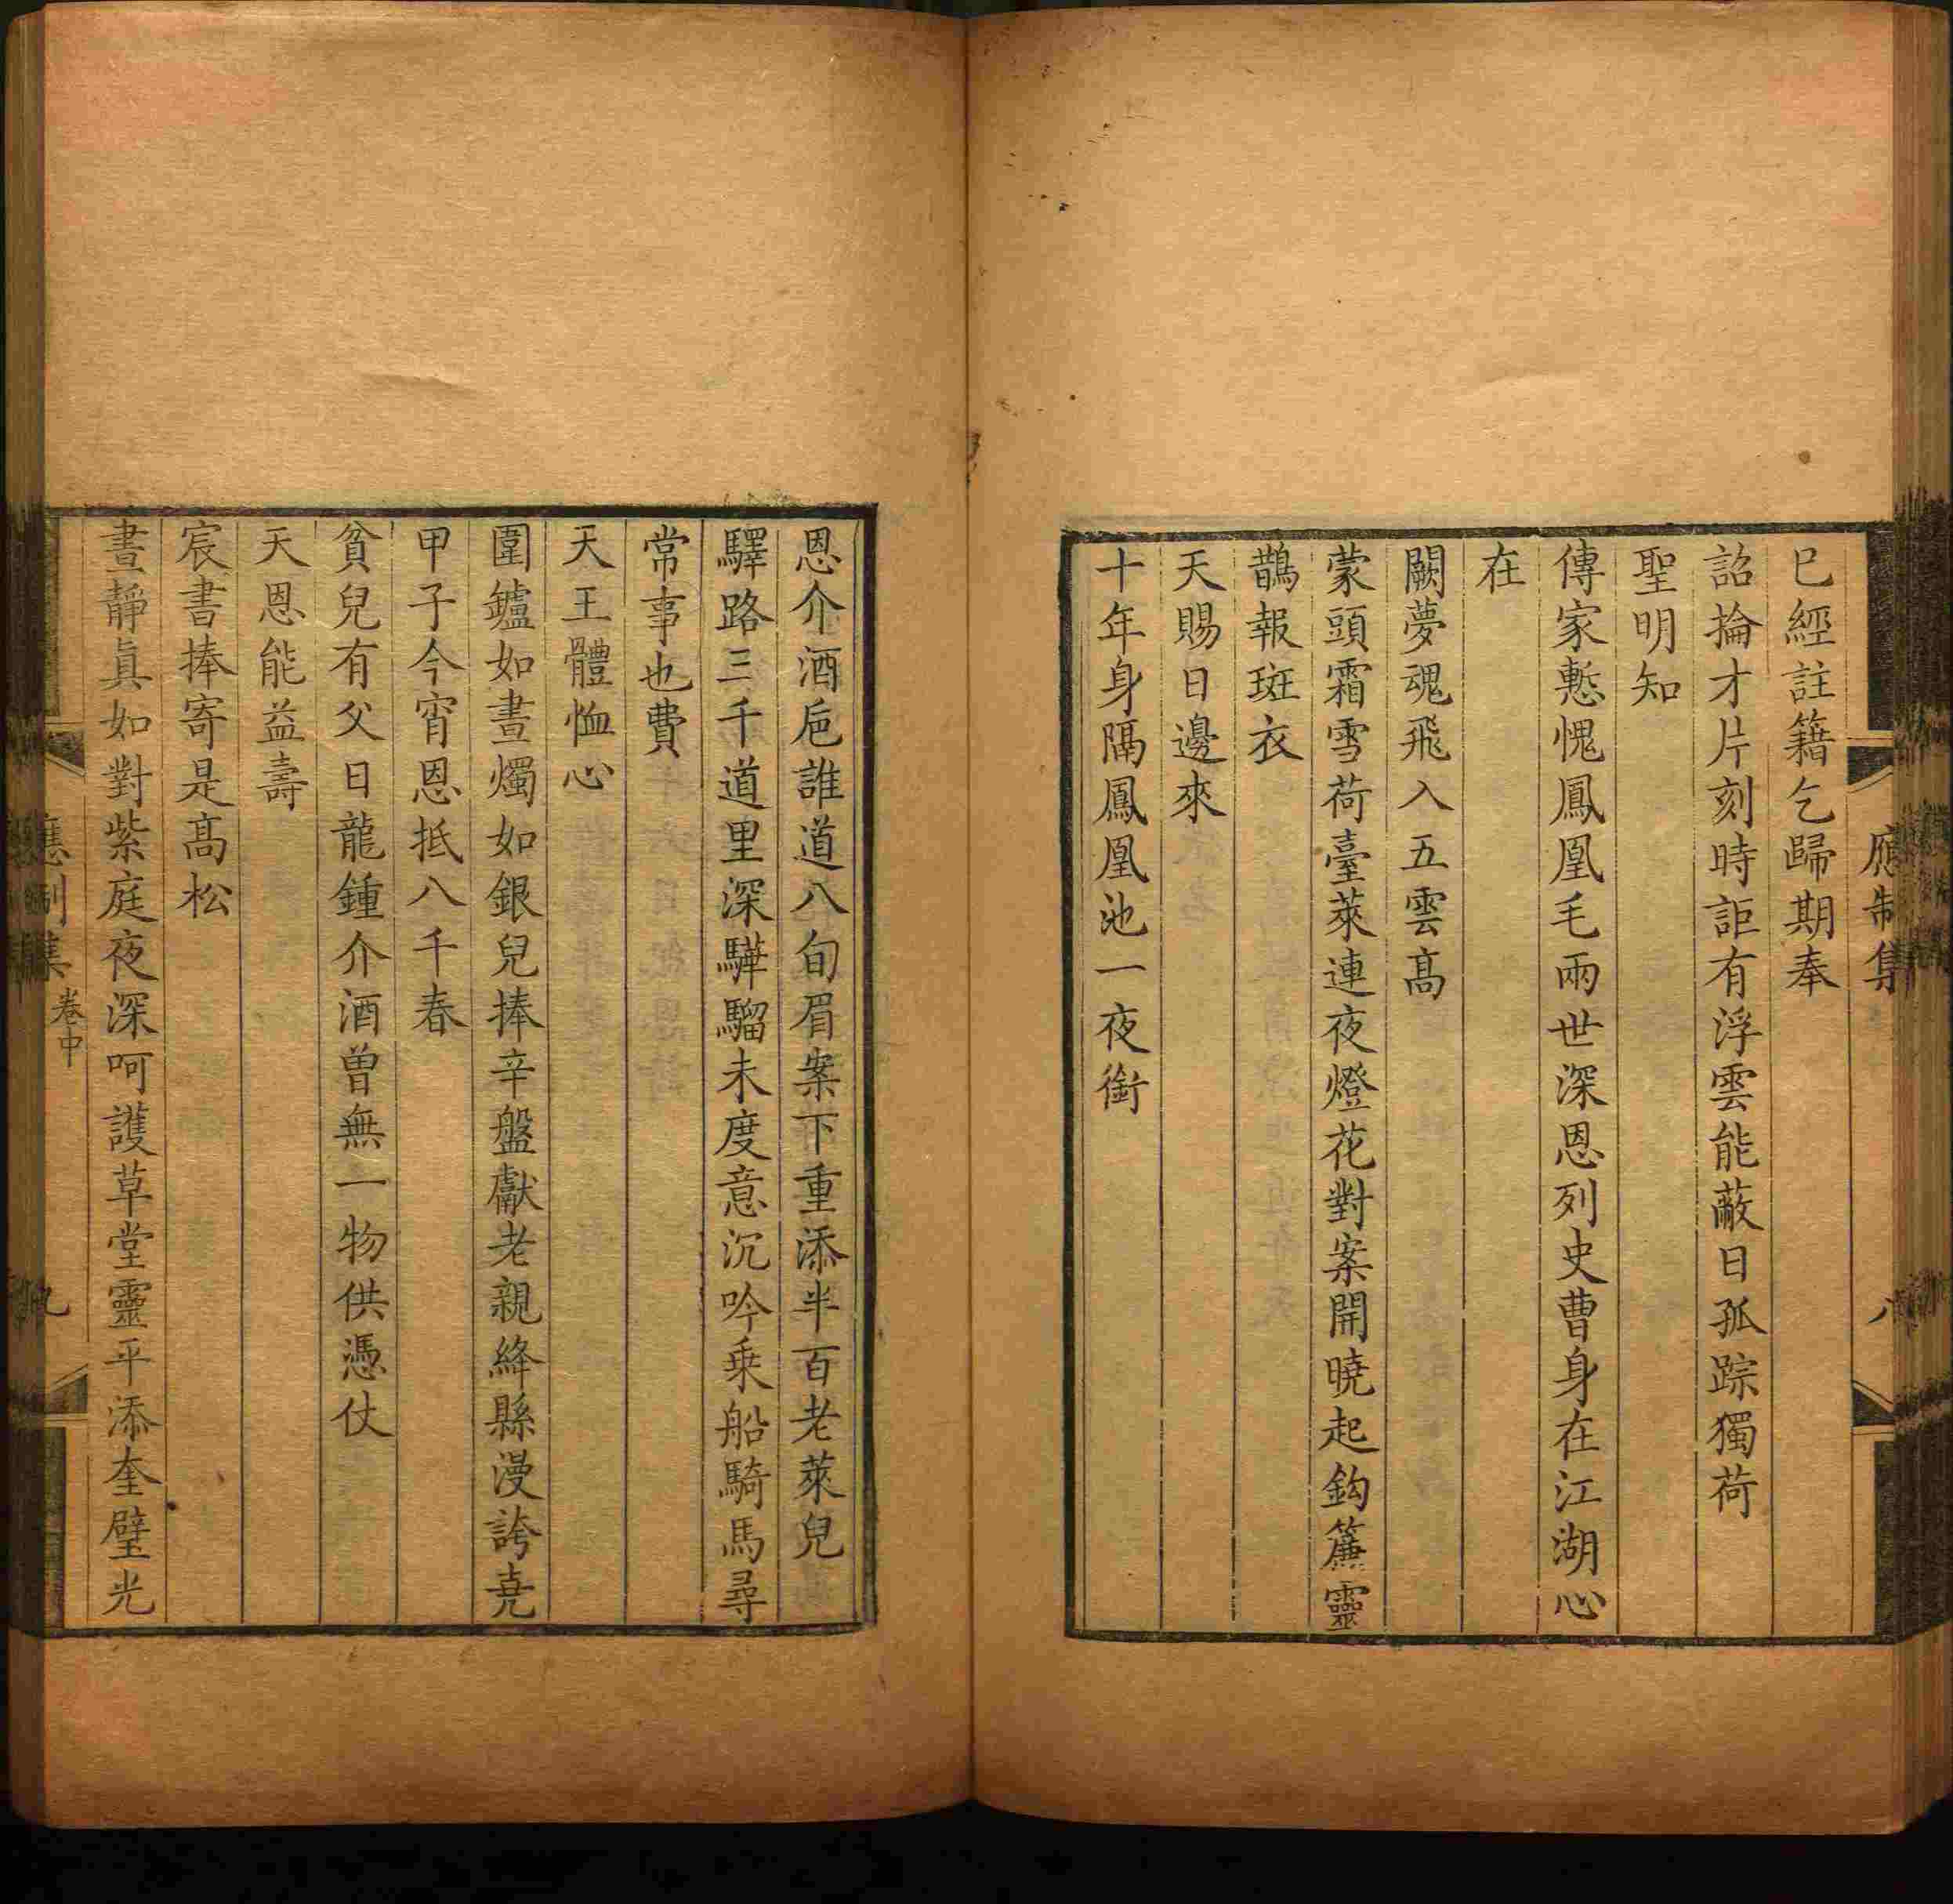 應制集
八
已經註籍乞歸期奉
詔掄才片刻時詎有浮雲能蔽日孤踪獨荷
聖明知
傳家慙愧鳳凰毛兩世深恩列史曹身在江湖心
在
闕夢魂飛入五雲高
蒙頭霜雪荷臺萊連夜燈花對案開曉起鈎簾靈
鵲報斑衣
天賜日邊來
十年身隔鳳凰池一夜銜
恩介酒巵誰道八旬眉案下重添半百老萊兒
驛路三千道里深驊騮未度意沉吟乗船騎馬尋
常事也費
天王體恤心
圍鑪如晝燭如銀兒捧辛盤獻老親絳縣漫誇尭
甲子今宵恩抵八千春
貧兒有父日龍鍾介酒曾無一物供憑仗
天恩能益壽
宸書捧寄是髙松
晝靜眞如對紫庭夜深呵護草堂靈平添奎璧光
應制集
卷中
九